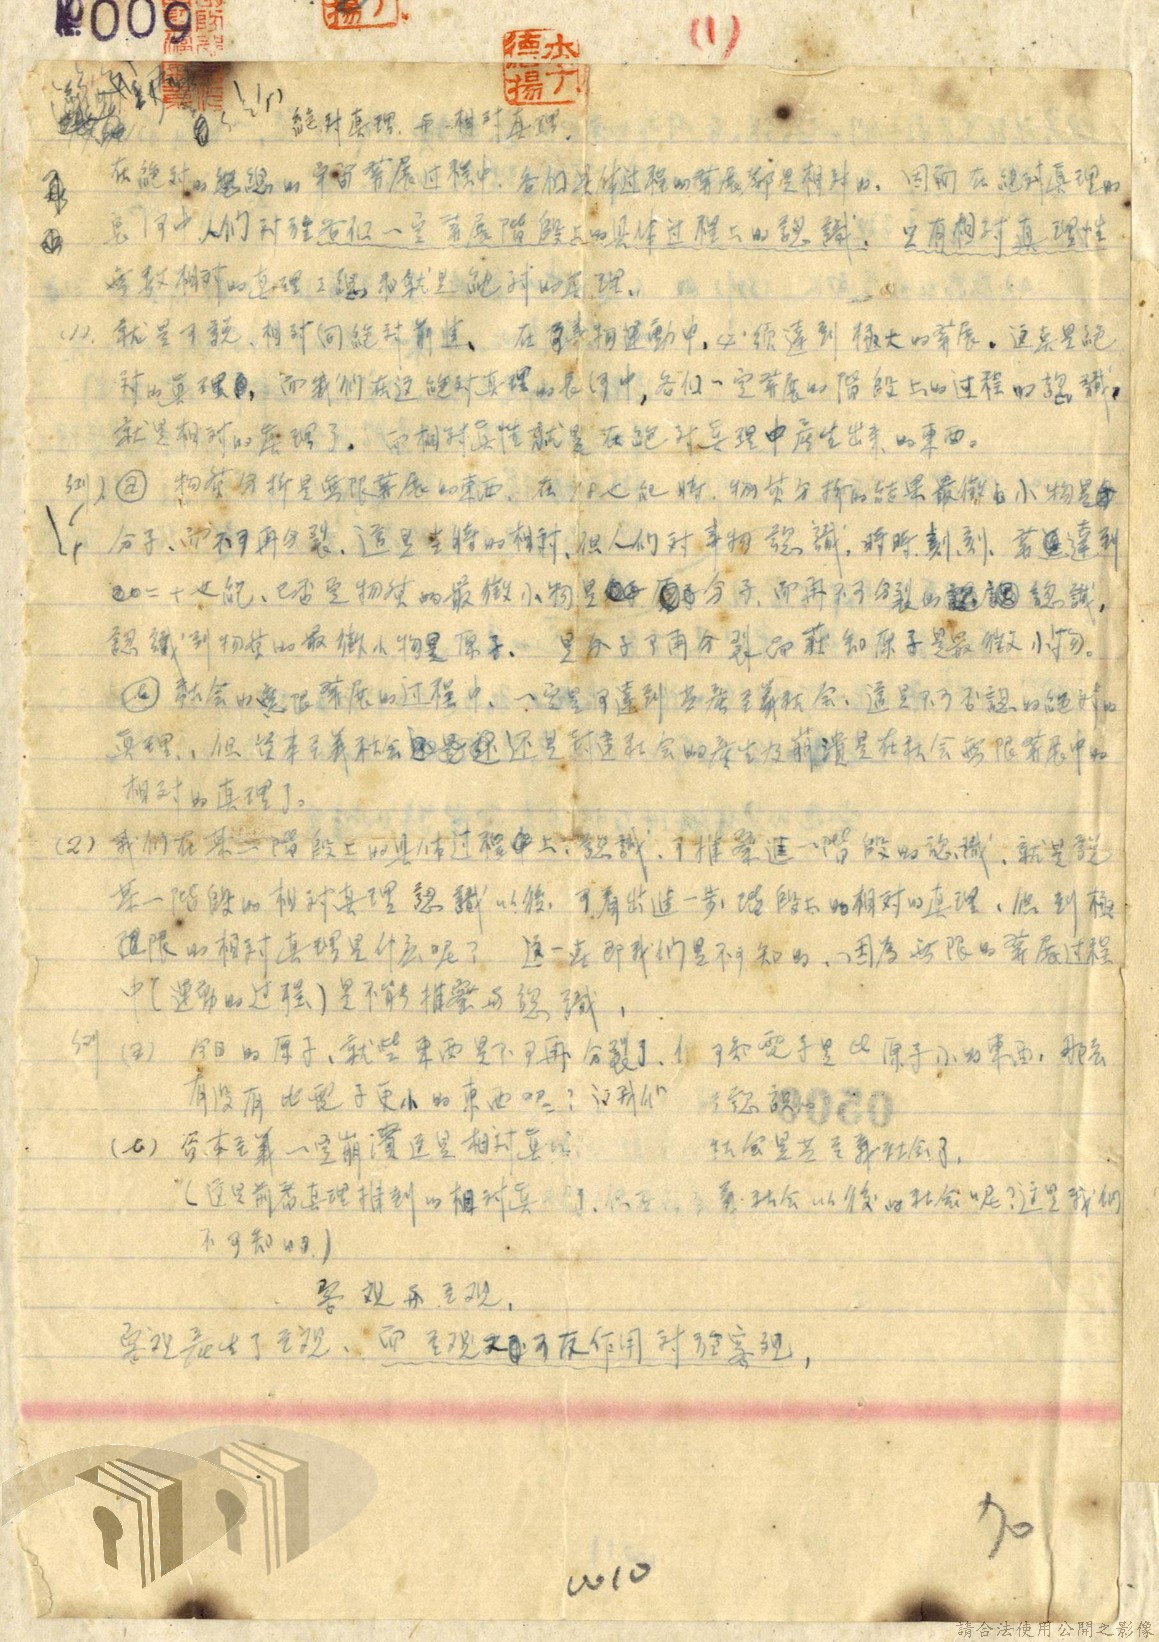 009
(1)
絕对真理 与 相对真理.
在絕对的 总的 宇宙發展过程中. 各個具体过程的發展都是相对的. 因而 在絕对真理的
長河中人们对於各個一定發展階段上的具体过程上的認識. 只有相对真理性
無数相对的真理之總和就是絕对的真理.
(1). 就是可說. 相对向絕对前進. 在事物運動中, 必須達到極大的發展. 这点是絕
对的真理, 而我们在这絕对真理的長河中, 各個一定發展的階段上的过程的認識,
就是相对的真理了. 而相对真性就是在絕对真理中産生出来的東西。
例 (a) 物質分析是無限發展的東西. 在 18世紀時. 物質分析的結果最微小物是
分子. 而不可再分裂. 這是当時的相对. 但人们对事物認識. 時時刻刻. 若達到
二十世紀. 已否定物質的最微小物是分子. 而再不可分裂的認識.
認識到物質的最微小物是原子. 是分子可再分裂而获知原子是最微小物。
社会的無限發展的过程中. 一定是可達到共産主義社会. 這是不可否認的絕对的
真理. 但資本主義社会还是封建社会的産生及崩潰是在社会無限發展中的
相对的真理了。
(2) 我们在某一階段上的具体过程上認識. 可推察進一階段的認識. 就是說
某一階段的相对真理認識以後. 可看出進一步階段上的相对的真理. 但到極
限的相对真理是什么呢? 这一点即我们是不可知的. 因為無限的發展过程
中(運動的过程)是不能推察与認識.
例 (a) 今日的原子. 就些東西是不可再分裂了. 可知電子是比原子小的東西. 那么
有没有比電子更小的東西呢? 这我们 認識
0500
資本主義一定崩潰这是相对真 社会是共産主義社会了.
(這是前者真理推到的相对真 了. 但 義社会以後的社会呢? 這是我们
不可知的.)
客观与主观.
客观産生了主观. 而主观又可反作用对於客观.
70
0010
請合法使用公開之影像